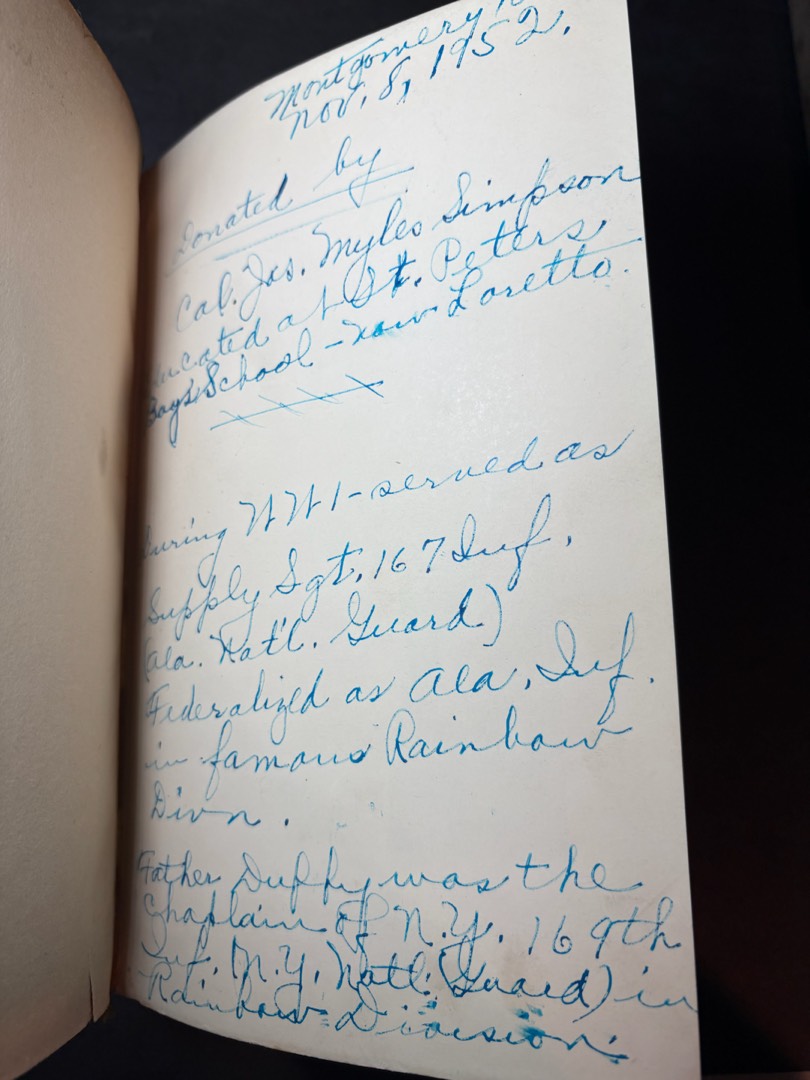 Montgomery
Nov. 8, 1952.
Donated by
Col. Jas. Myles Simpson
educated at St. Peters
Boys School - now Loretto.
During WW1 - served as
Supply Sgt. 167 Inf.
(Ala. Nat'l. Guard)
Federalized as Ala. Inf.
in famous Rainbow
Divn.
Father Duffy was the
Chaplain of N.Y. 169th
Inf. (N.Y. Natl. Guard) in
Rainbow Division.